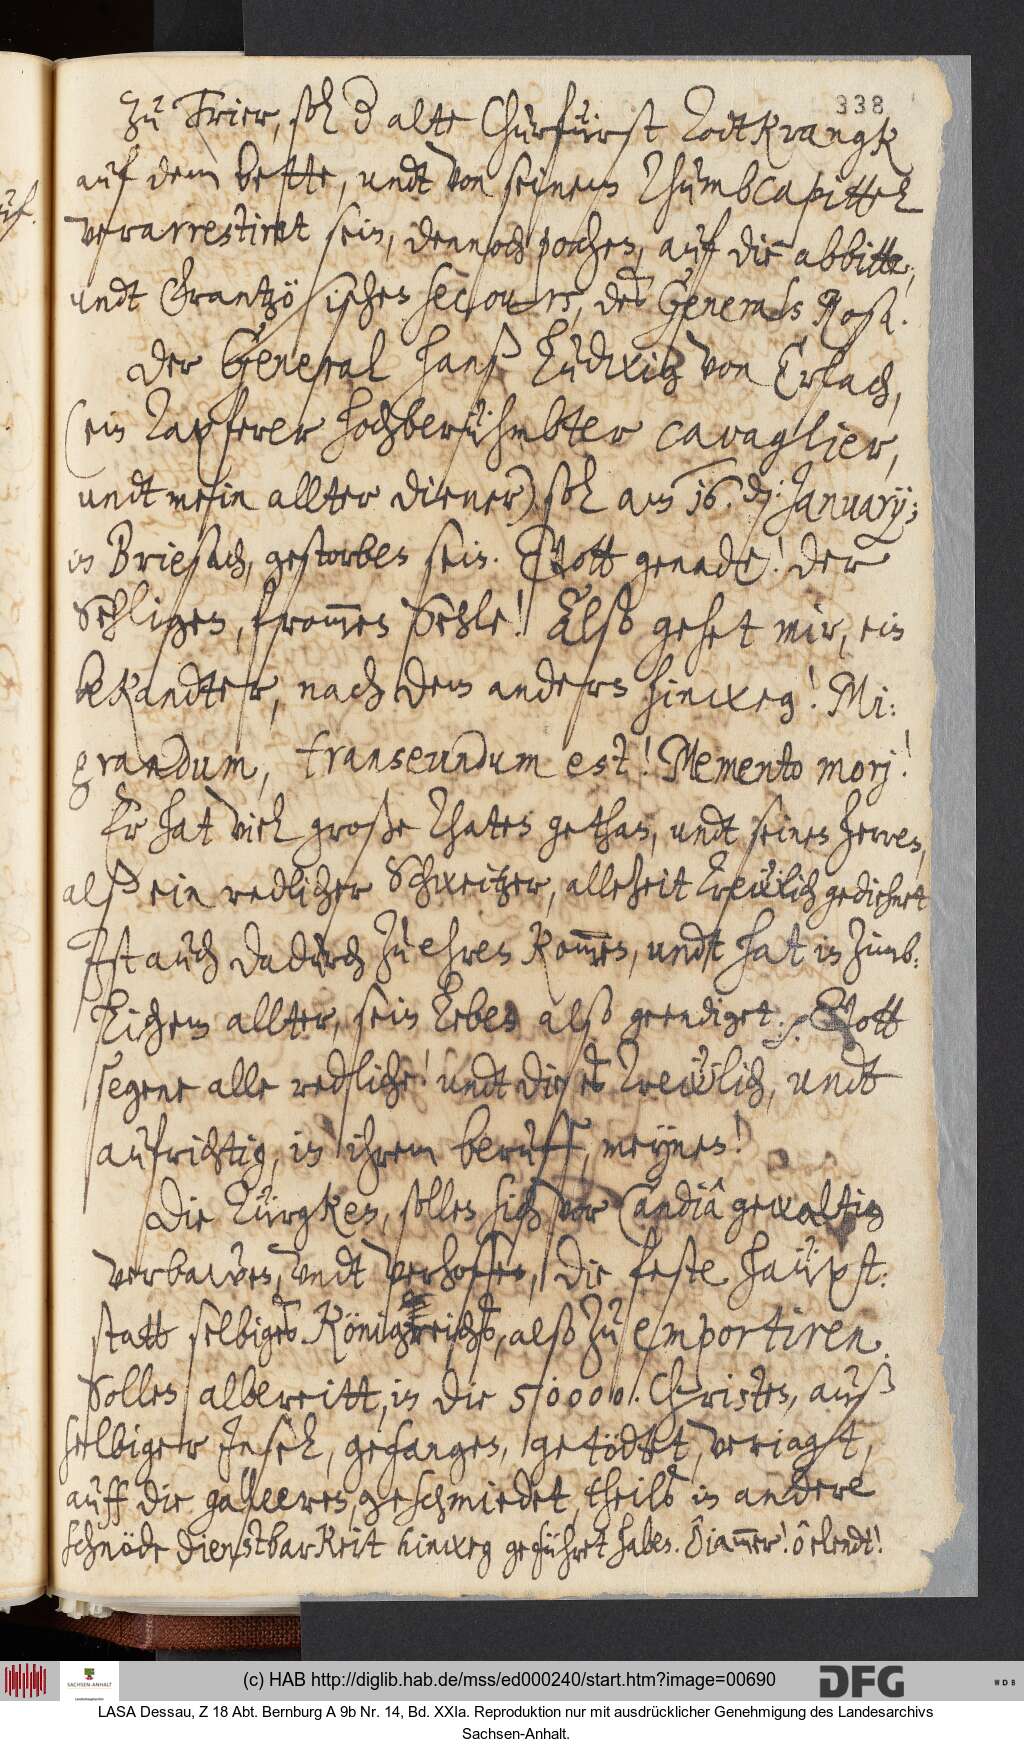 338
Zu Trier, soll d alte Churfürst Todtkrangk
auf dem bette, undt von seinem Thumbcapittell
verarrestiret sein, dennoch pochen, auf die abbitte,
undt Frantzösischen secours, des Generals Rosa.
Der General Hanß Ludwig von Erlach,
(ein Tapferer hochberühmbter cavaglier,
undt mein allter diener) soll am 16. dj: January;
in Briesach, gestorben sein. Gott genade! der
Sehligen, frommen Sehle! Also gehet mir, ein
bekandter, nach dem andern hinweg! Mi:
grandum, transeundum est! Memento morj!
Er hat viel große Thaten gethan, undt seinen Herren,
alß ein redlicher Schweitzer, allezeit Treẅlich gedienet
Ist auch dadurch zu ehren kommen, undt hat in zimb:
lichem allter, sein Leben also geendiget. Gott
segene alle redliche! undt die es Treẅlich, undt
aufrichtig, in ihrem beruff, meynen!
Die Türgken, sollen sich vor Candiâ gewaltig
verbawen, undt verhoffen, die feste Haüpt:
stadt selbiges Königreichs, also zu emportiren.
Sollen albereitt, in die 50000 Christen, auß
selbiger Insel, gefangen, getödtet, veriagt,
auff die galleeren, geschmiedet, theils in andere
schnöde dienstbarkeit hinweg geführet haben. ô iammer! ô elendt!
(c) HAB http://diglib.hab.de/mss/ed000240/start.htm?image=00690
SACHSEN-ANHALT
DFG
WDB
LASA Dessau, Z 18 Abt. Bernburg A 9b Nr. 14, Bd. XXIa. Reproduktion nur mit ausdrücklicher Genehmigung des Landesarchivs
Sachsen-Anhalt.